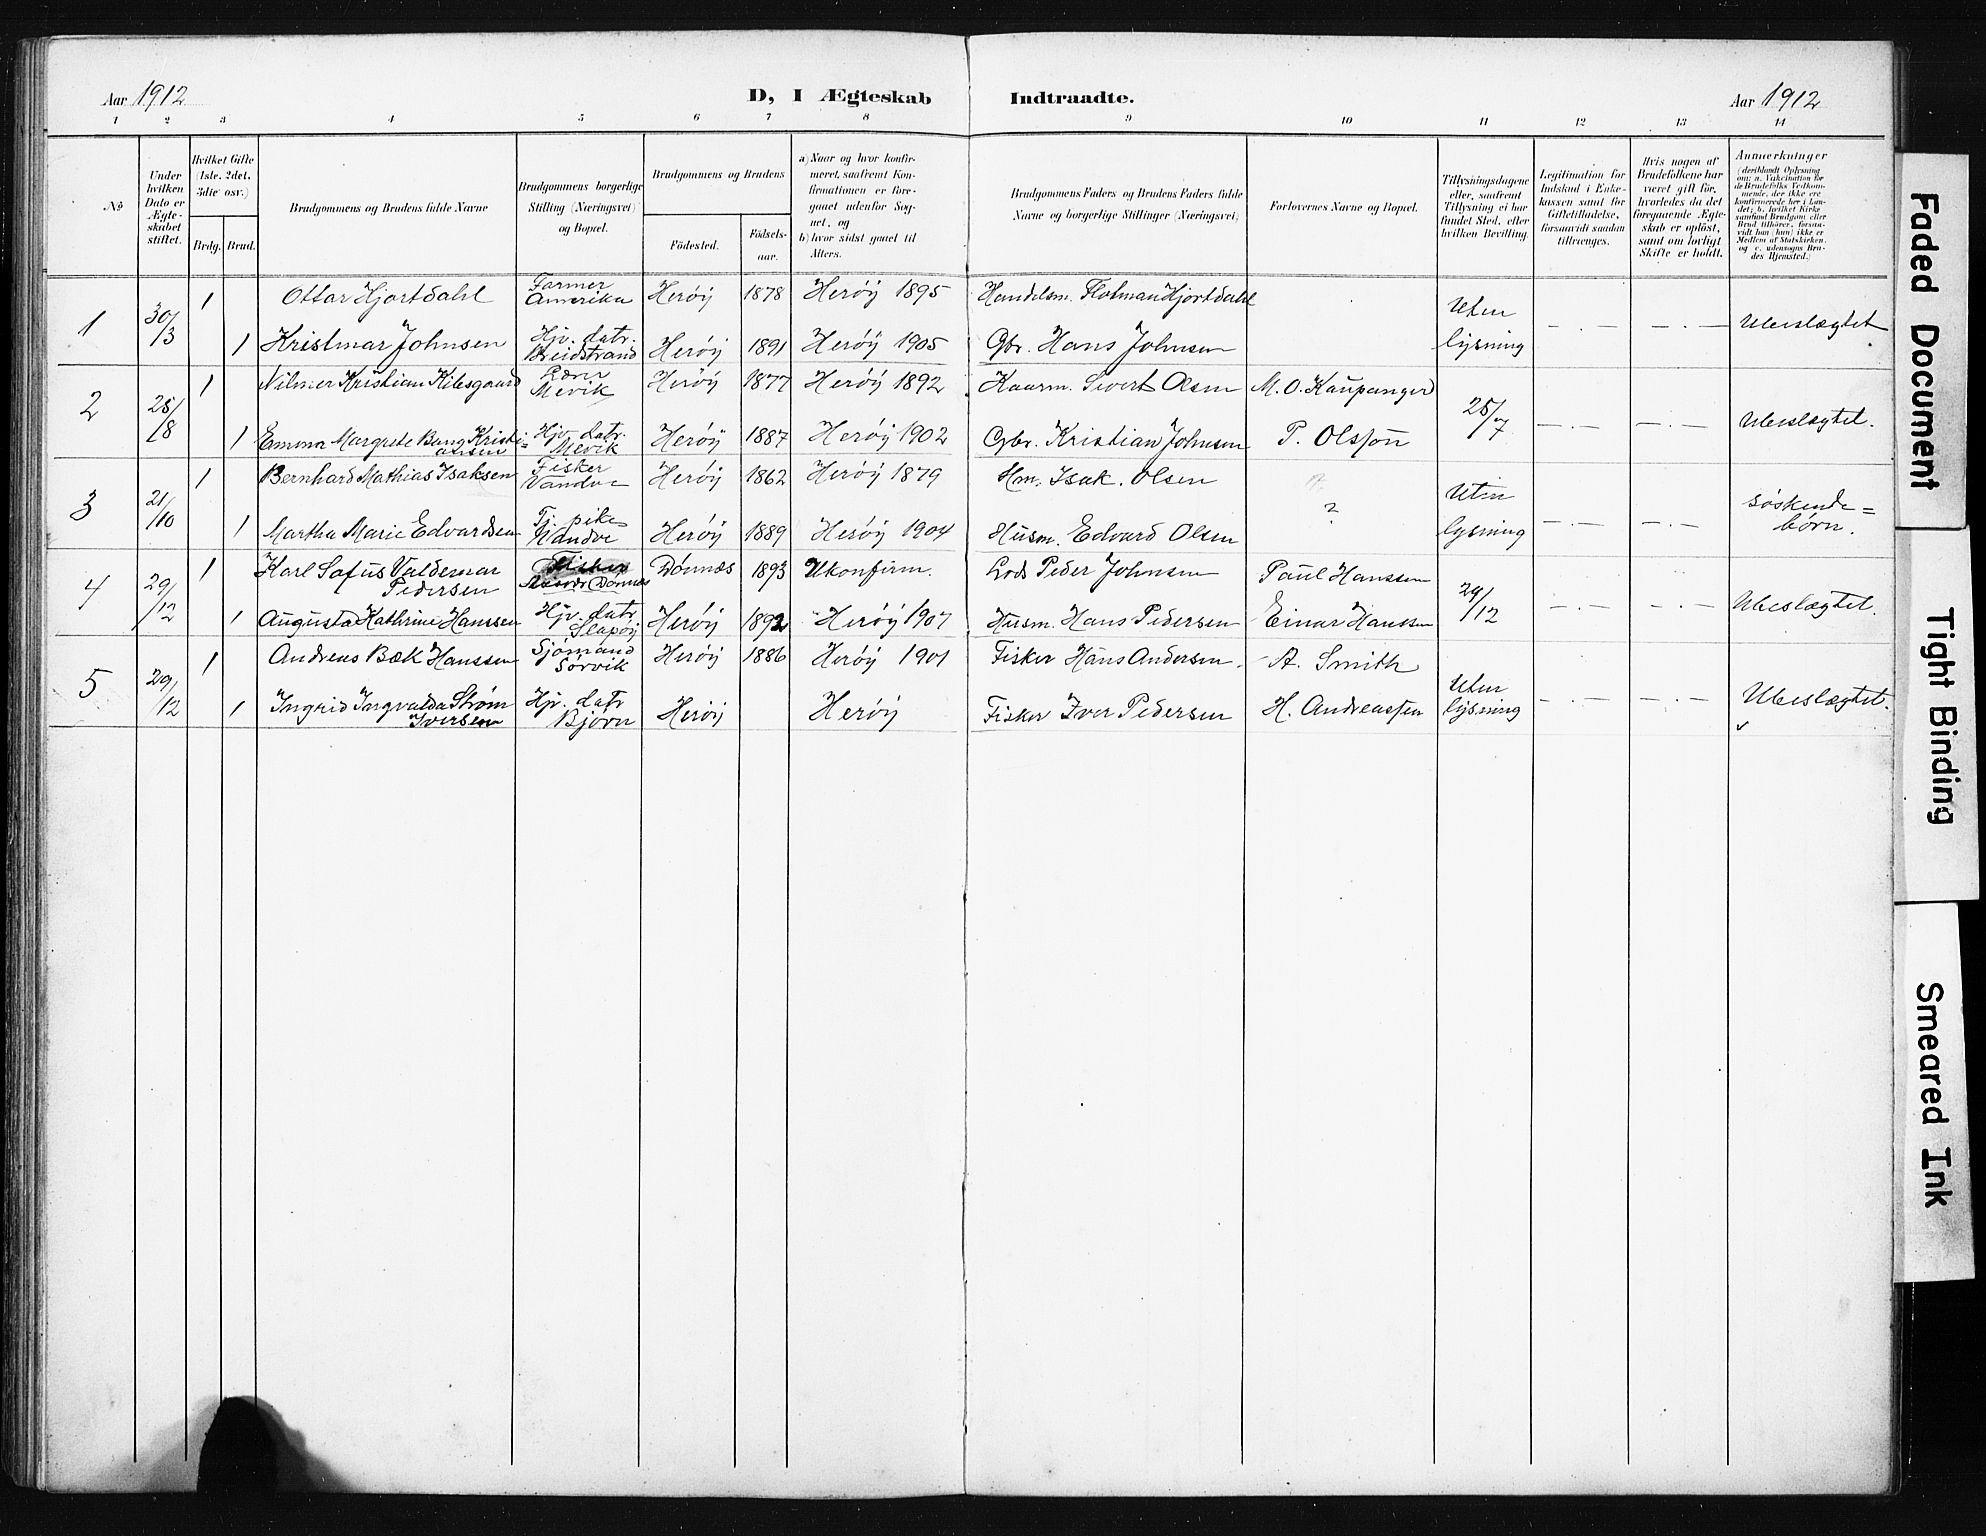 Aar 1912
D, I Ægteskab Indtraadte.
Aar 1912
1 2 3 4 5 6 7 8 9 10 11 12 13 14
No
Under hvilken Dato er Ægteskabet stiftet.
Hvilket Gifte (1ste, 2det, 3die osv.)
Brdg. Brud.
Brudgommens og Brudens fulde Navne
Brudgommens borgerlige Stilling (Næringsvei) og Bopæl.
Brudgommens og Brudens
Födested.
Födsels-aar.
a) Naar og hvor konfirmeret, saafremt Konfirmationen er foregaaet udenfor Sognet, og
b) hvor sidst gaaet til Alters.
Brudgommens Faders og Brudens Faders fulde Navne og borgerlige Stillinger (Næringsvei)
Forlovernes Navne og Bopæl.
Tillysningsdagene eller, saafremt Tillysning ei har fundet Sted, efter hvilken Bevilling.
Legitimation for Indskud i Enkekassen samt for Giftetilladelse, forsaavidt saadan tiltrænges.
Hvis nogen af Brudefolkene har været gift før, hvorledes da det foregaaende Ægteskab er oplöst, samt om lovligt Skifte er holdt.
Anmerkninger
(deriblandt Oplysning om: a. Vakcination for de Brudefolks Vedkommende, der ikke ere konfirmerede her i Landet; b. hvilket Kirkesamfund Brudgom eller Brud tilhörer, forsaavidt han (hun) ikke er Medlem af Statskirken, og c. udensogns Brudes Hjemsted.)
1 30/3 1 Ottar Hjortdahl Farmer Amerika Herøy 1878 Herøy 1895 Handelsm. Hjortdahl Uten lysning — . — — . — Ubeslægtet
1 Kristmar Johnsen Hjv. datr. Breidstrand Herøy 1891 Herøy 1905 Gbr. Hans Johnsen
2 25/8 1 Hilmer Kristian Kilsgaard Lærer Mevik Herøy 1877 Herøy 1892 Kaarm. Sivert Olsen M. O. Kaupanger 25/7 — . — — . — Ubeslægtet.
1 Emma Margrete Bang Kristiansen Hjv. datr. Mevik Herøy 1887 Herøy 1902 Gbr. Kristian Johnsen P. Olsson
3 21/10 1 Bernhard Mathias Isaksen Fisker Vandve Herøy 1862 Herøy 1879 Hm. Isak. Olsen ? Uten lysning — . — — . — søskendebørn.
1 Martha Marie Edvardsen Tj. pike Vandve Herøy 1889 Herøy 1904 Husm. Edvard Olsen
4 29/12 1 Karl Sofus Valdemar Pedersen Fisker Dønnes Dønnæs 1893 Ukonfirm. Lods Peder Johnsen Paul Hanssen 29/12 — . — — . — Ubeslægtet.
1 Augusta Kathrine Hanssen Hjv. datr. Slapøy Herøy 1892 Herøy 1907 Husm. Hans Pedersen Einar Hanssen
5 29/12 1 Andreas Bæk Hanssen Sjømand Sørvik Herøy 1886 Herøy 1901 Fisker Hans Andersen. A. Smith Uten lysning — . — — . — Ubeslægtet.
1 Ingrid Ingvalda Strøm Iversen Hjv. datr Bjørn Herøy Herøy Fisker Iver Pedersen H. Andreassen
Faded Document
Tight Binding
Smeared Ink